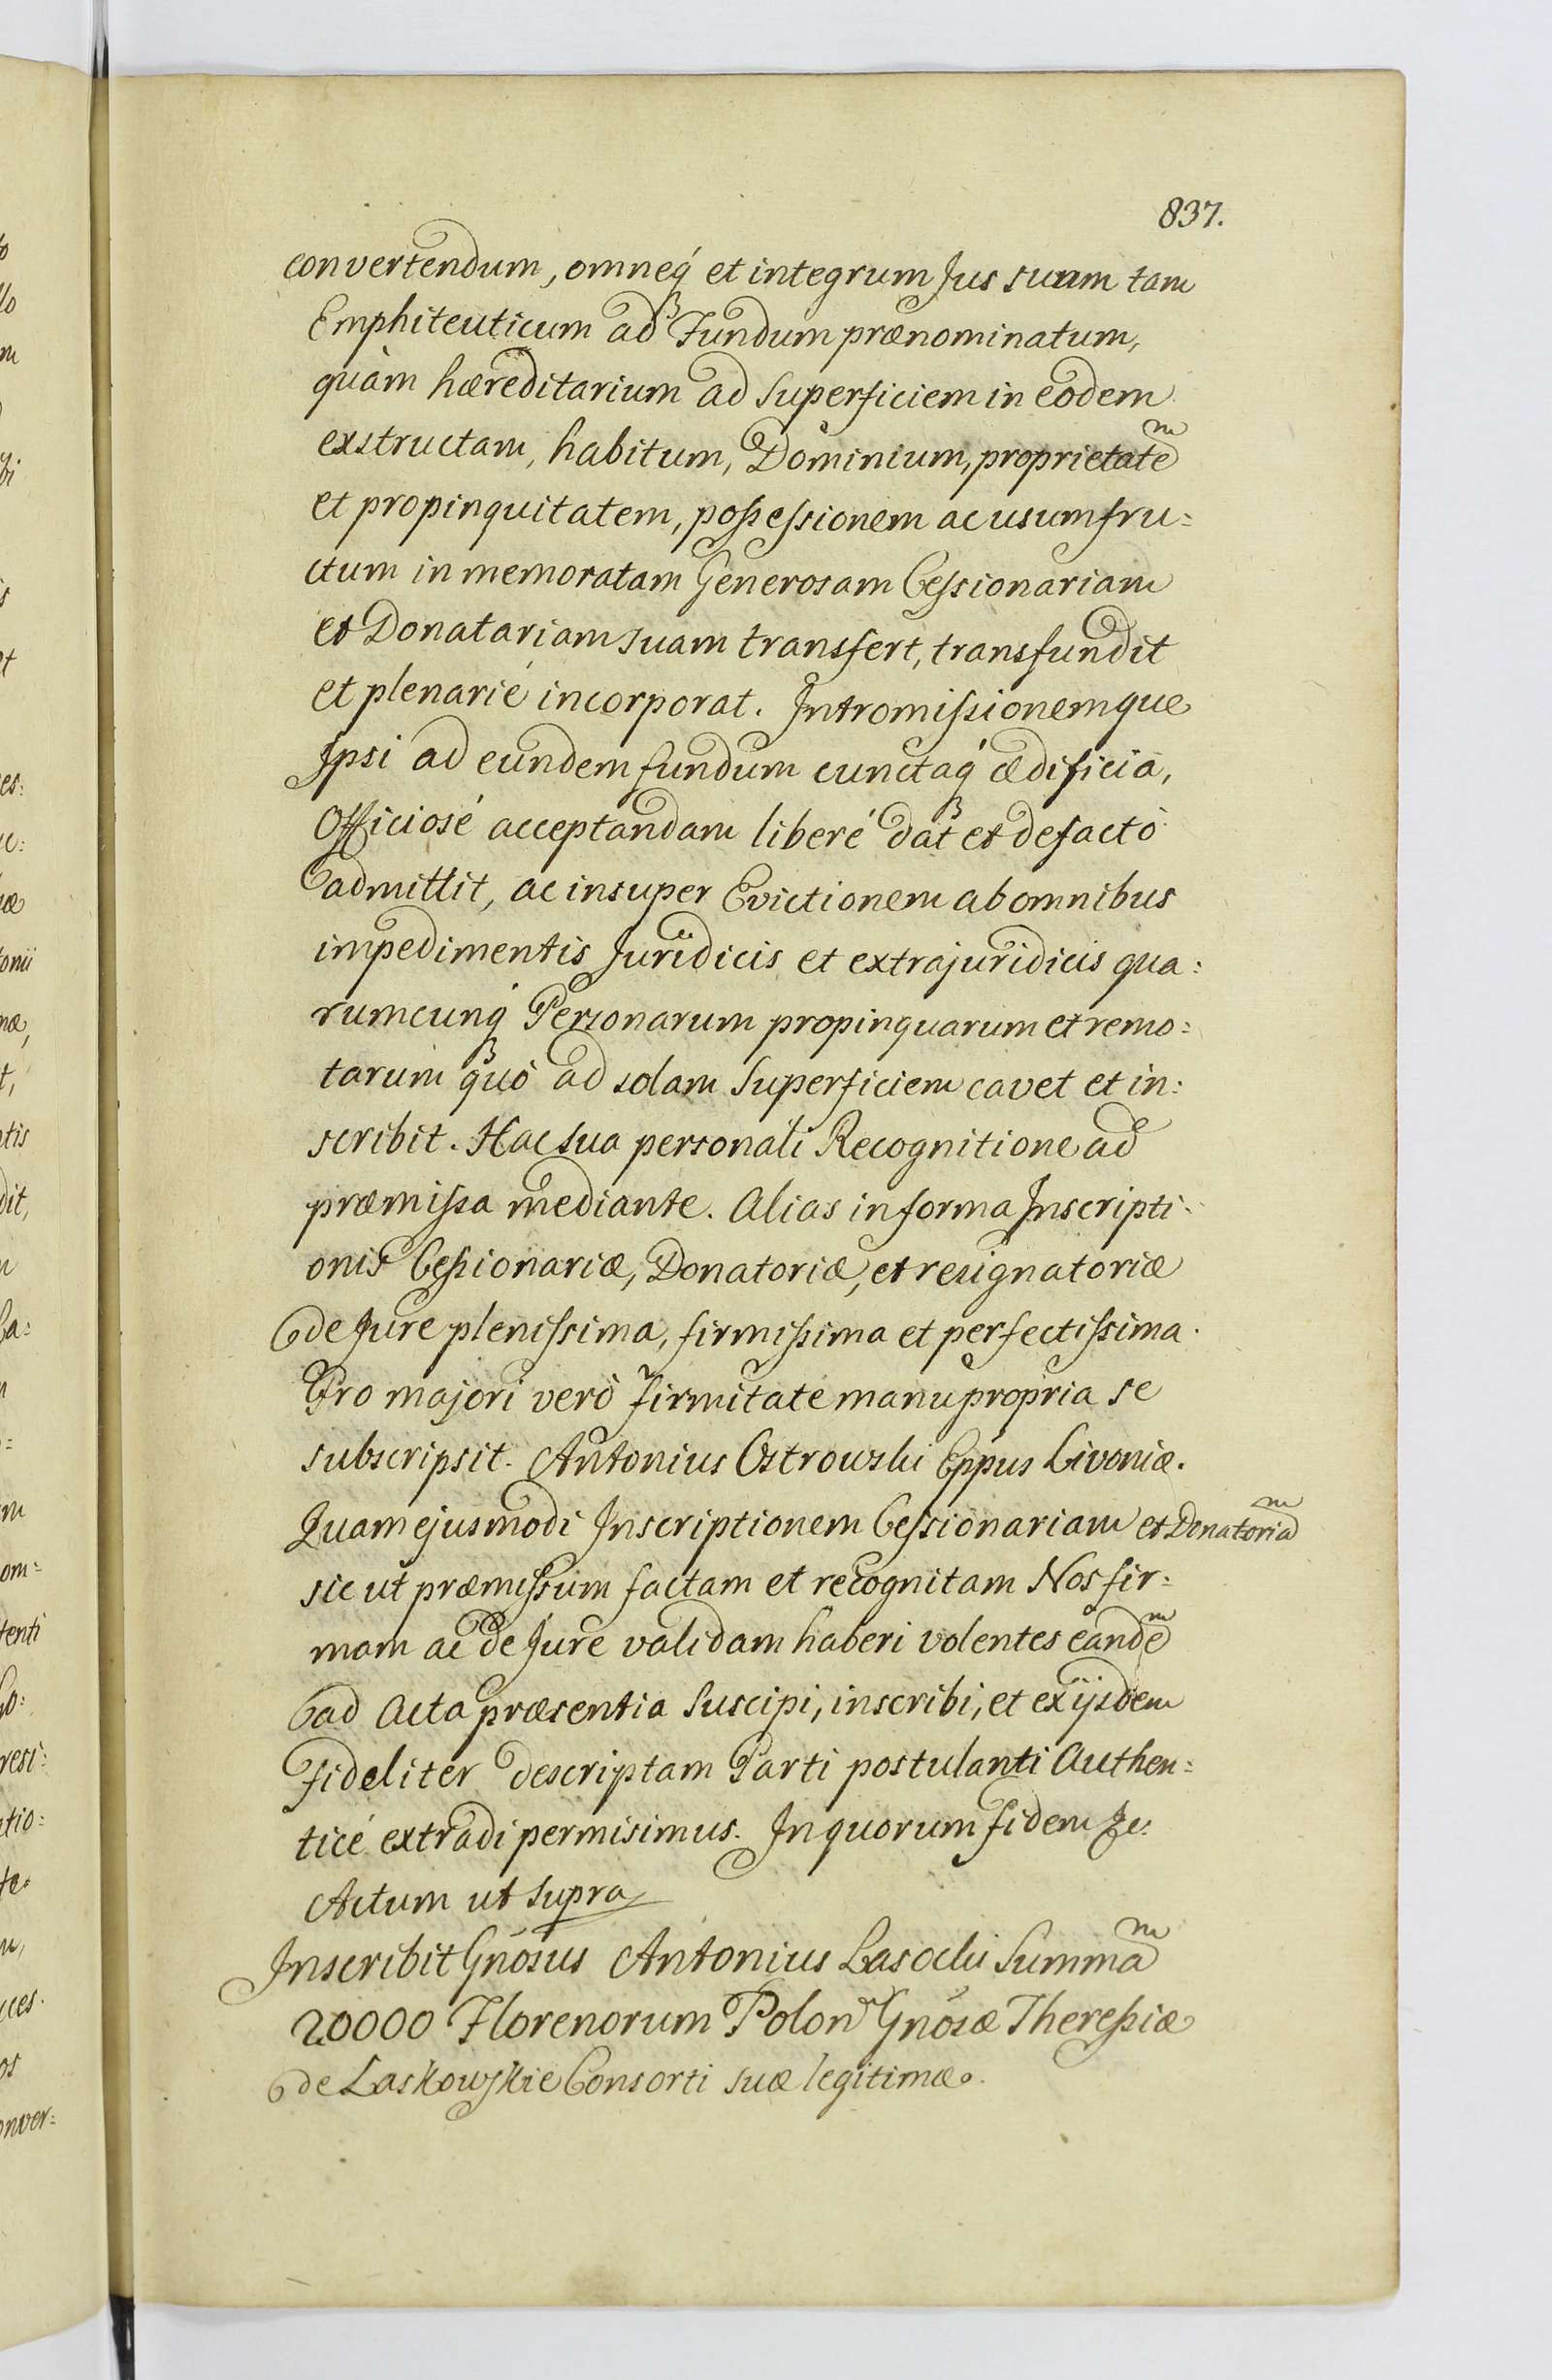 837.
convertendum, omneq́ et integrum Jus suum tam
Emphiteuticum ad Fundum prænominatum,
quàm hæreditarium ad Superficiem in eodem
exstructam, habitum, Dominium, proprietatem
et propinquitatem, possessionem ac usumfru=
ctum in memoratam Generosam Cessionariam
et Donatariam suam transfert, transfundit
et plenarié incorporat. Intromissionemque
Ipsi ad eundem fundum cunctaq́ ædificia,
Officiosé acceptandam liberé dat et defacto
admittit, ac insuper Evictionem ab omnibus
impedimentis Juridicis et extrajuridicis qua=
rumcunq́ Personarum propinquarum et remo=
tarum quò ad solam Superficiem cavet et in=
scribit. Hac sua personali Recognitione ad
præmissa mediante. Alias in forma Inscripti=
onis Cessionariæ, Donatoriæ, et resignatoriæ
de Jure plenissima, firmissima et perfectissima.
Pro majori verò firmitate manu propria se
subscripsit. Antonius Ostrowski Eppus Livoniæ.
Quam ejusmodi Inscriptionem Cessionariam et Donatoriam
sic ut præmissum factam et recognitam Nos fir=
mam ac de Jure validam haberi volentes eandem
ad Acta præsentia suscipi, inscribi, et ex ijsdem
fideliter descriptam Parti postulanti Authen=
ticé extradi permisimus. In quorum fidem &c.
Actum ut supra
Inscribit Gnosus Antonius Lasocki Summam
20000 Florenorum Polon Gnosæ Theressiæ
de Laskowskie Consorti suæ legitimæ.